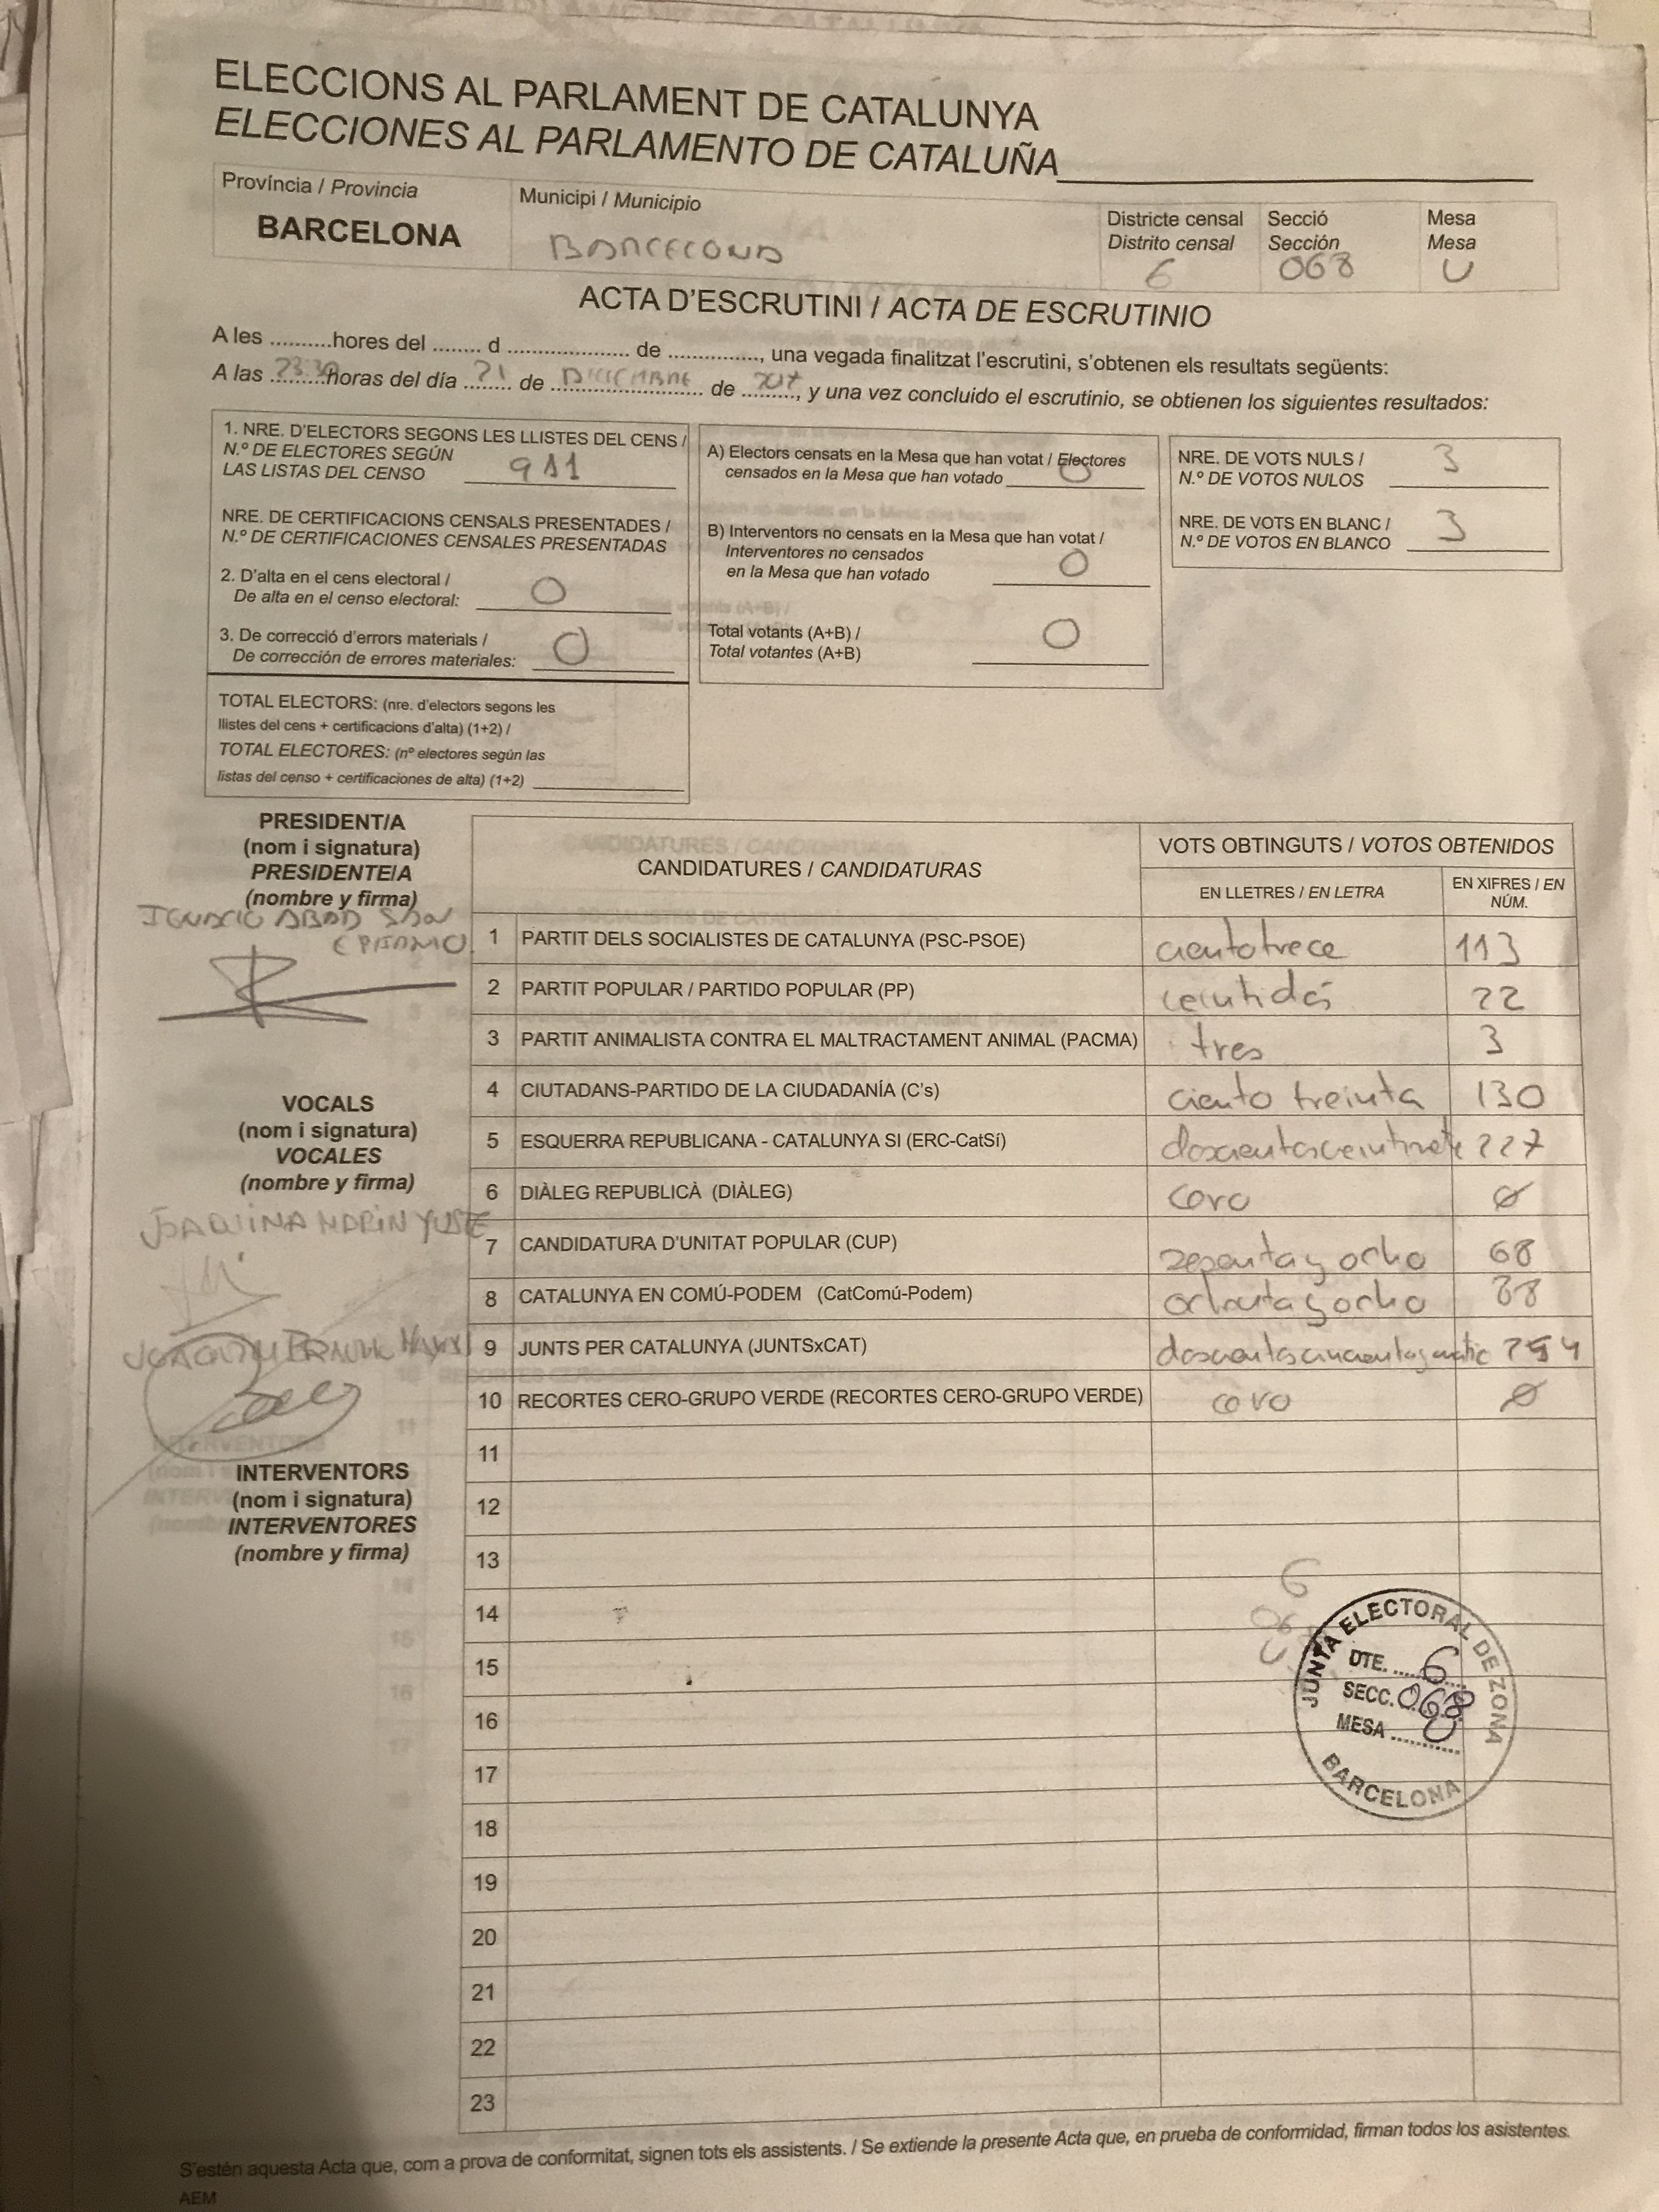 ELECCIONS AL PARLAMENT DE CATALUNYA
ELECCIONES AL PARLAMENTO DE CATALUÑA
Província / Provincia
BARCELONA
Municipi / Municipio
BARCELONA
Districte censal
Distrito censal
6
Secció
Sección
068
Mesa
Mesa
U
ACTA D'ESCRUTINI / ACTA DE ESCRUTINIO
A les ..........hores del ........ d ..................... de ..............., una vegada finalitzat l'escrutini, s'obtenen els resultats següents:
A las 23:30 horas del día 21 de DICIEMBRE de 2017, y una vez concluido el escrutinio, se obtienen los siguientes resultados:
1. NRE. D'ELECTORS SEGONS LES LLISTES DEL CENS /
N.º DE ELECTORES SEGÚN
LAS LISTAS DEL CENSO 911
NRE. DE CERTIFICACIONS CENSALS PRESENTADES /
N.º DE CERTIFICACIONES CENSALES PRESENTADAS
2. D'alta en el cens electoral /
De alta en el censo electoral: 0
3. De correcció d'errors materials /
De corrección de errores materiales: 0
TOTAL ELECTORS: (nre. d'electors segons les
llistes del cens + certificacions d'alta) (1+2) /
TOTAL ELECTORES: (nº electores según las
listas del censo + certificaciones de alta) (1+2)
A) Electors censats en la Mesa que han votat / Electores
censados en la Mesa que han votado 0
B) Interventors no censats en la Mesa que han votat /
Interventores no censados
en la Mesa que han votado 0
Total votants (A+B) /
Total votantes (A+B) 0
NRE. DE VOTS NULS /
N.º DE VOTOS NULOS 3
NRE. DE VOTS EN BLANC /
N.º DE VOTOS EN BLANCO 3
PRESIDENT/A
(nom i signatura)
PRESIDENTE/A
(nombre y firma)
IGNACIO ABAD
VOCALS
(nom i signatura)
VOCALES
(nombre y firma)
JOAQUINA MARIN YUSTE
JOAQUIM
INTERVENTORS
(nom i signatura)
INTERVENTORES
(nombre y firma)
CANDIDATURES / CANDIDATURAS
VOTS OBTINGUTS / VOTOS OBTENIDOS
EN LLETRES / EN LETRA
EN XIFRES / EN
NÚM.
1 PARTIT DELS SOCIALISTES DE CATALUNYA (PSC-PSOE) ciento trece 113
2 PARTIT POPULAR / PARTIDO POPULAR (PP) veintidós 22
3 PARTIT ANIMALISTA CONTRA EL MALTRACTAMENT ANIMAL (PACMA) tres 3
4 CIUTADANS-PARTIDO DE LA CIUDADANÍA (C's) ciento treinta 130
5 ESQUERRA REPUBLICANA - CATALUNYA SI (ERC-CatSí) doscientos veintisiete 227
6 DIÀLEG REPUBLICÀ (DIÀLEG) cero 0
7 CANDIDATURA D'UNITAT POPULAR (CUP) sesenta y ocho 68
8 CATALUNYA EN COMÚ-PODEM (CatComú-Podem) ochenta y ocho 88
9 JUNTS PER CATALUNYA (JUNTSxCAT) doscientos cincuenta y cuatro 254
10 RECORTES CERO-GRUPO VERDE (RECORTES CERO-GRUPO VERDE) cero 0
11
12
13
14
15
16
17
18
19
20
21
22
23
6
068
U
JUNTA ELECTORAL DE ZONA
DTE. 6
SECC. 068
MESA U
BARCELONA
S'estén aquesta Acta que, com a prova de conformitat, signen tots els assistents. / Se extiende la presente Acta que, en prueba de conformidad, firman todos los asistentes.
AEM